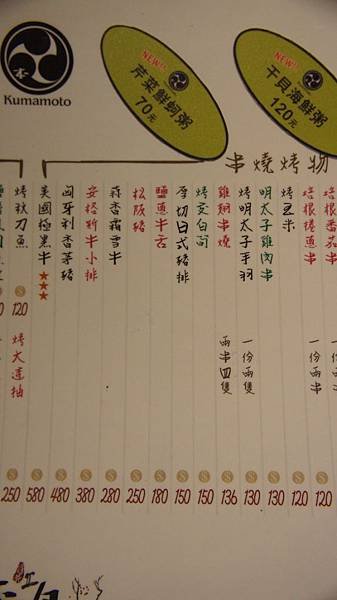 本
Kumamoto
NEW!!
芹菜鮮蚵粥
70元
NEW!!
干貝海鮮粥
120元
串燒烤物
培根番茄串 一份兩串
培根捲蔥串 一份兩串 120
烤玉米 120
明太子雞肉串 130
烤明太子手羽 一份兩隻 130
雞翅串燒 兩串四隻 136
烤茭白筍 150
厚切日式豬 150
鹽蔥牛舌 180
松阪豬 250
蒜香霜雪牛 280
安格斯牛小排 380
匈牙利香草豬 480
美國極黑牛★★★ 580
烤秋刀魚 120
烤大連抽 250